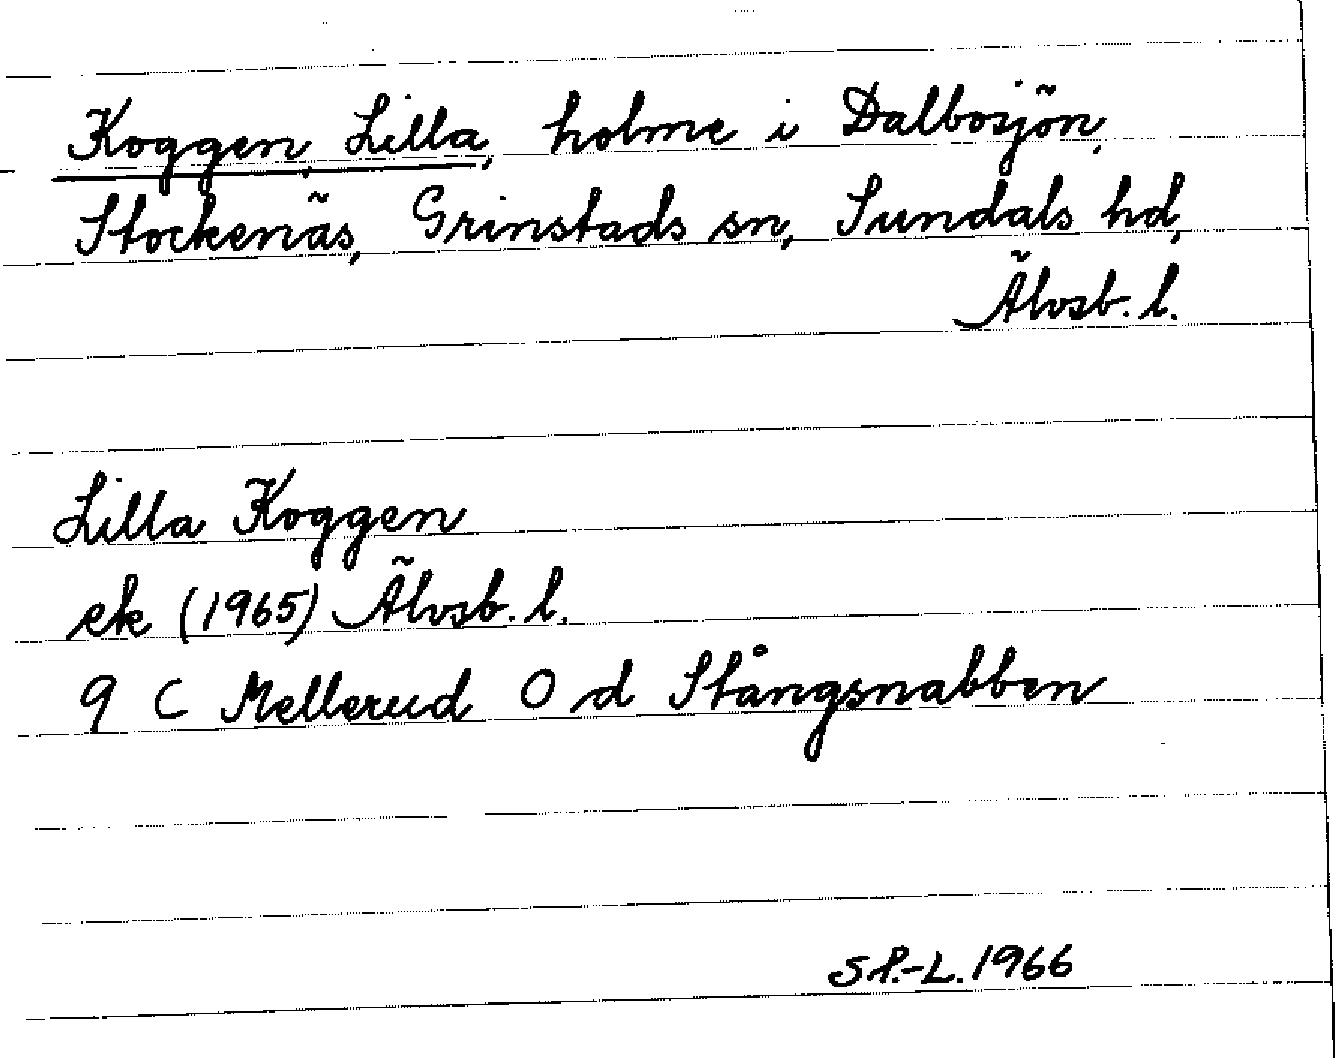 Koggen, Lilla, holme i Dalbosjön,
Stockenäs, Grinstads sn, Sundals hd,
Älvsb. l.
Lilla Koggen
ek (1965) Älvsb. l.
9 C Mellerud O d Stångsnabben
S P.-L. 1966